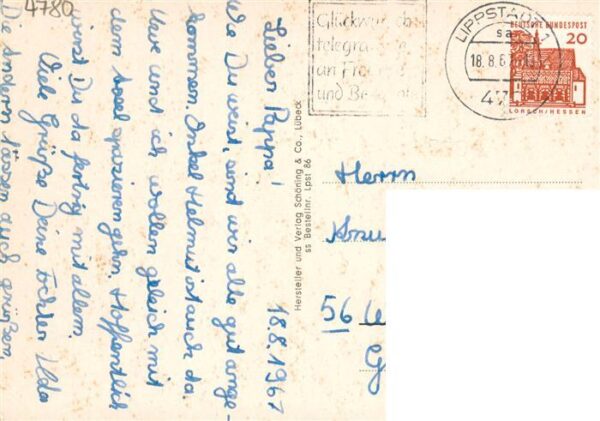 4780
Glückwunsch
telegra
an Fre
und Be
LIPPSTADT 1
sa
18.8.6
47
DEUTSCHE BUNDESPOST
20
LORSCH/HESSEN
18.8.1967
Lieber Pappa!
Wie Du weist, sind wir alle gut ange-
kommen. Onkel Helmut ist auch da.
Uwe und ich wollen gleich mit
dem spazieren gehn. Hoffentlich
wirst Du da fertig mit allem.
Viele Grüße Deine Tochter Ilda
Die anderen lassen auch grüßen.
Hersteller und Verlag Schöning & Co., Lübeck
ss Bestellnr. Lpst 86
Herrn
Knu
56
G